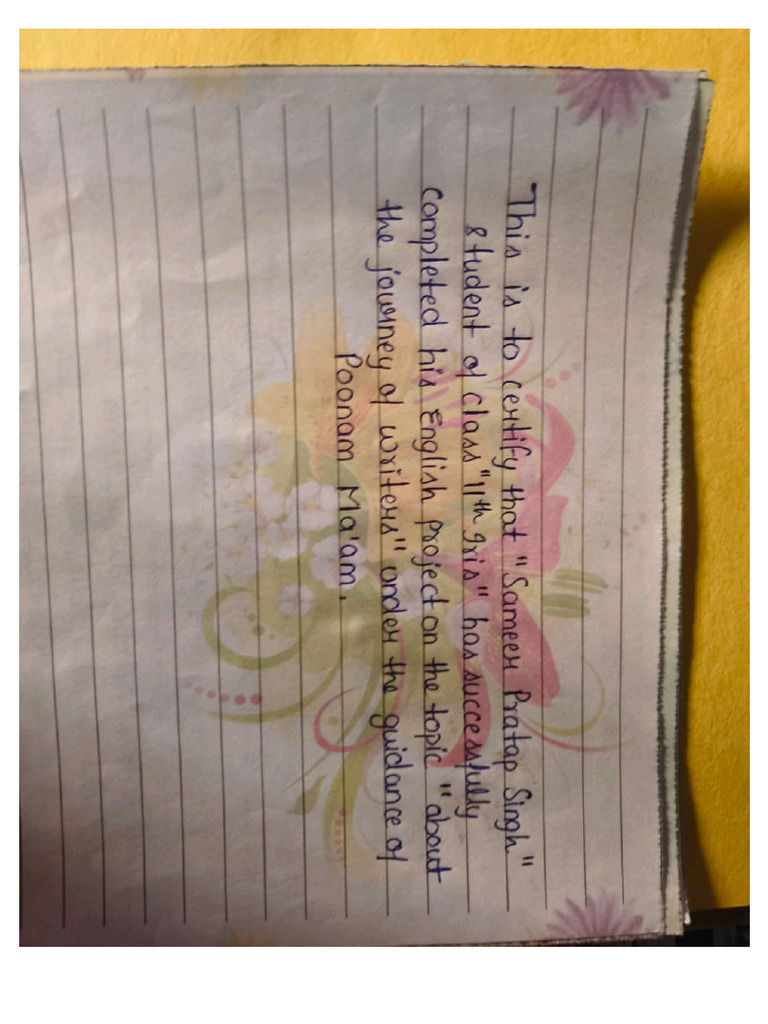 This is to certify that "Sameer Pratap Singh"
student of class "11th Iris" has successfully
completed his English project on the topic "about
the journey of writers" under the guidance of
Poonam Ma'am.